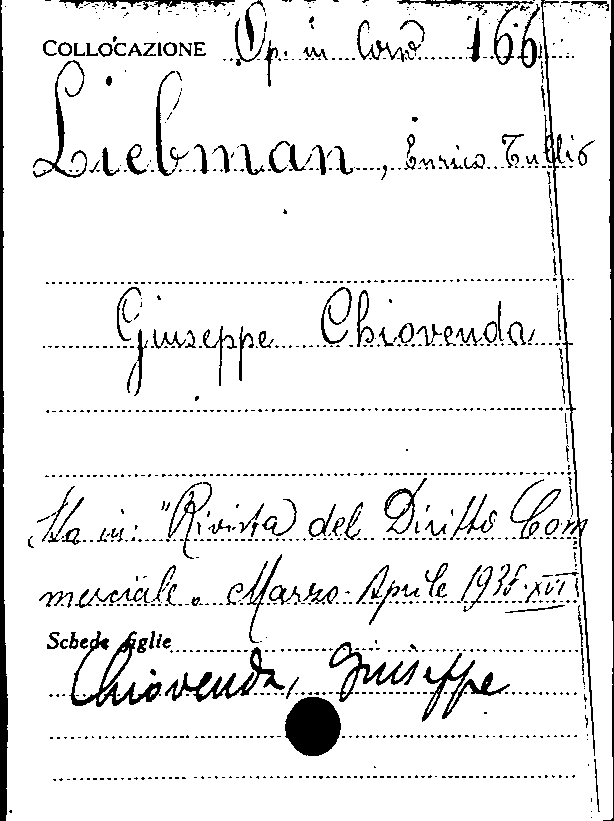 COLLOCAZIONE Op. in Corso 166
Liebman, Enrico Tullio
Giuseppe Chiovenda
Sta in: "Rivista del Diritto Com
merciale". Marzo-Aprile 1938-XVI
Schede figlie
Chiovenda, Giuseppe